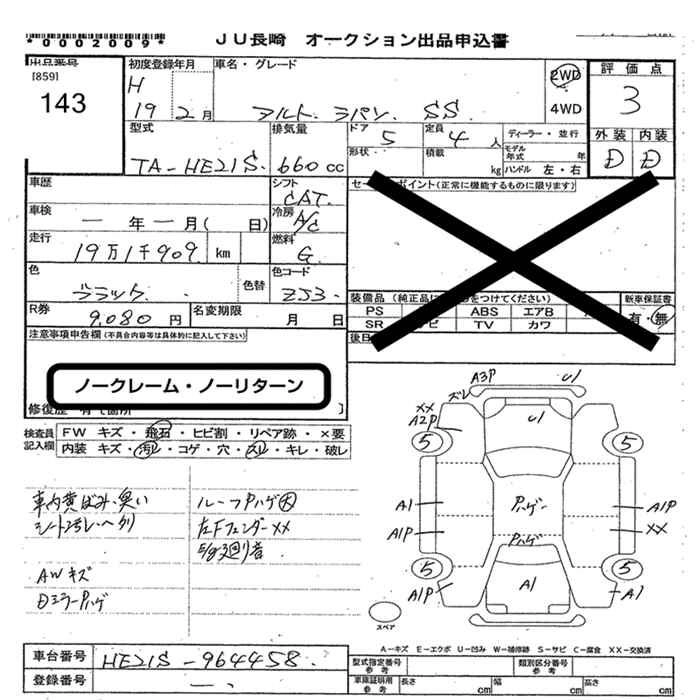 *0002009*
JU長崎 オークション出品申込書
出品番号
[859]
143
初度登録年月
H
19 2月
車名・グレード
アルト ラパン SS
2WD
4WD
評価点
3
外装 内装
D D
型式
TA-HE21S
排気量
660cc
ドア 5
形状
定員 4人
積載 kg
ディーラー・並行
モデル年式 年
ハンドル 左・右
車歴
シフト
CAT
セールスポイント(正常に機能するものに限ります)
車検
一年一月( 日)
冷房
A/C
走行
19万1千909 km
燃料
G
色
ブラック
色替
色コード
ZJ3
装備品
新車保証書
有・無
PS ABS エアB
SR TV カワ
R券
9,080円
名変期限
月 日
後日
注意事項申告欄(不具合内容等は具体的に記入して下さい)
ノークレーム・ノーリターン
修復歴 有 て箇所
検査員記入欄
FW キズ・飛石・ヒビ割・リペア跡・×要
内装 キズ・汚れ・コゲ・穴・スレ・キレ・破レ
車内黄ばみ・臭い
シート汚レ・ヘタリ
AWキズ
ルーフPハゲ大
左Fフェンダー××
A3P
U1
ズレ
××
A2P
U1
5
5
A1
A1P
Pハゲ
Pハゲ
A1P
××
5
5
A1P
A1
A1
スペア
A-キズ E-エクボ U-凹み W-補修跡 S-サビ C-腐食 XX-交換済
車台番号
HE21S-964458
登録番号
型式指定番号
参考
類別区分番号
参考
車庫証明用
参考
長さ cm
幅 cm
高さ cm